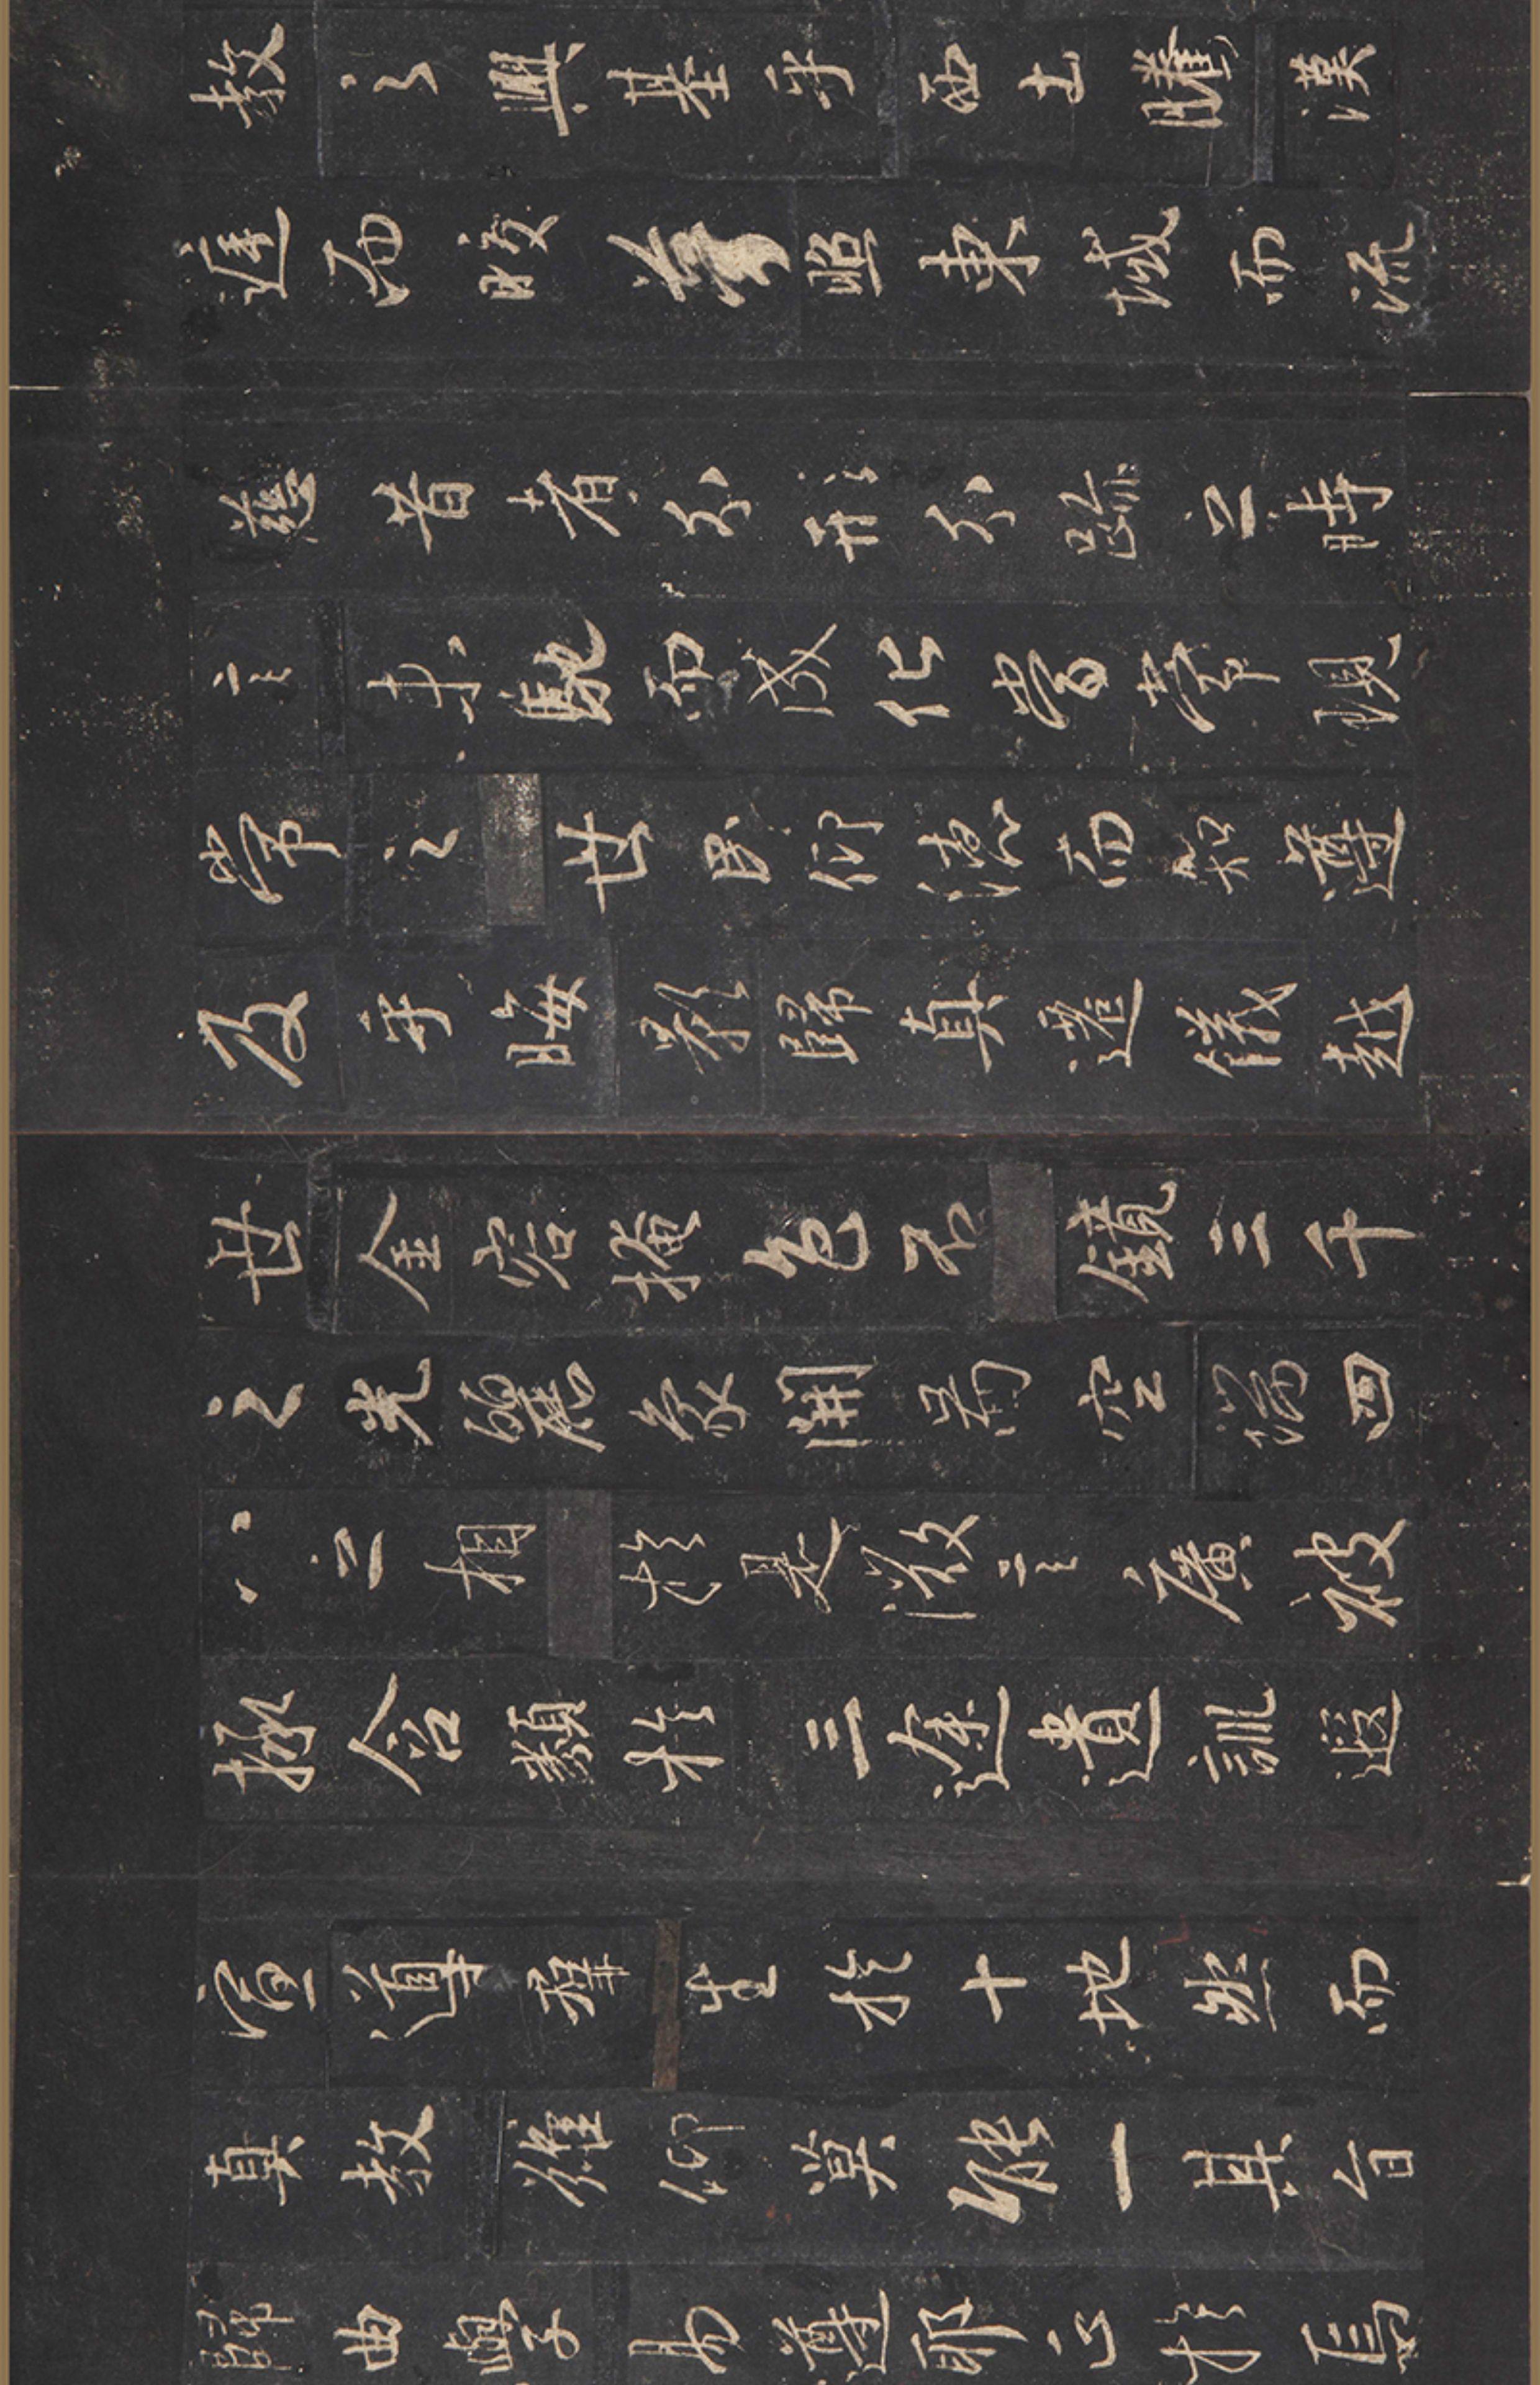 教之興基乎西土騰漢
庭而皎夢照東域而流
慈昔者分形分跡之時
言未馳而成化當常現
常之世民仰德而知遵
及乎晦影歸真遷儀越
世金容掩色不鏡三千
之光麗象開圖空端四
八之相於是微言廣被
拯含類於三途遺訓遐
宣導群生於十地然而
真教難仰莫能一其旨
歸曲學易遵邪正於焉